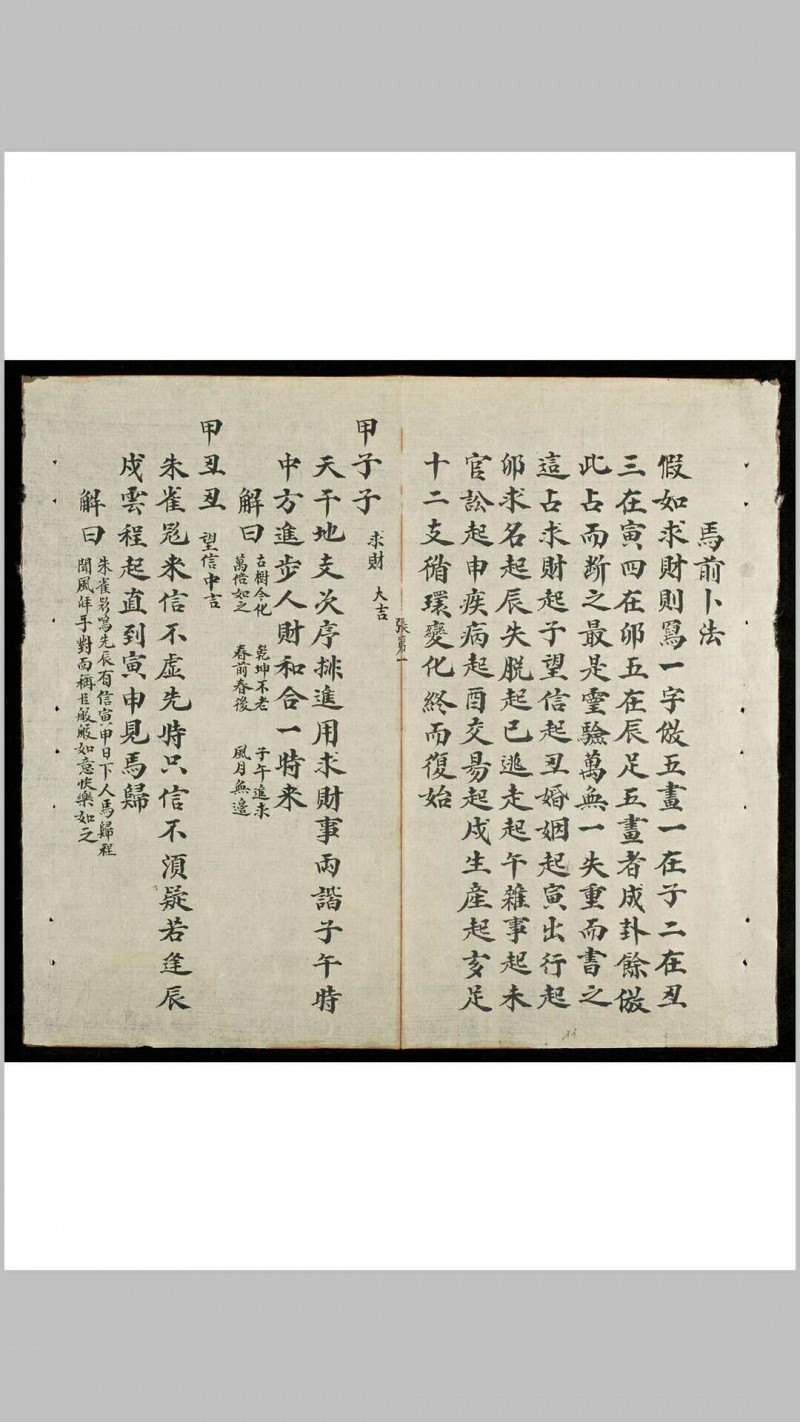 馬前卜法
假如求財則寫一字倣五畫一在子二在丑
三在寅四在卯五在辰足五畫者成卦餘倣
此占而斷之最是靈驗萬無一失重而書之
這占求財起子望信起丑婚姻起寅出行起
卯求名起辰失脫起巳逃走起午雜事起未
官訟起申疾病起酉交易起戌生産起亥足
十二支循環變化終而復始
張第一
甲子子 求財 大吉
天干地支次序排進用求財事兩諧子午時
中方進步人財和合一時来
解曰 古樹今化 乾坤不老 子午進求
萬倍如之 春前春後 風月無邊
甲丑丑 望信中吉
朱雀来信不虛先時只信不須疑若逢辰
戌雲程起直到寅申見馬歸
解曰 朱雀鳴先辰有信寅申日下人馬歸程
聞風拜手對面稱般般如意快樂如之